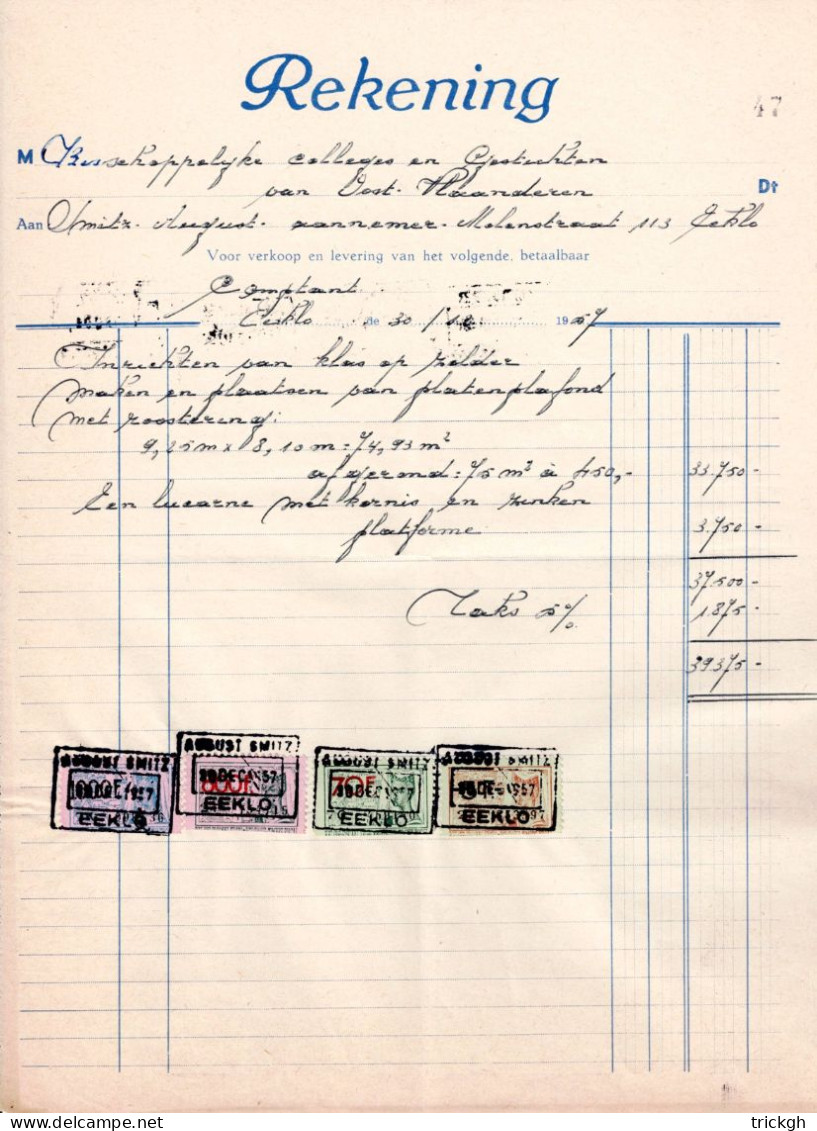 Rekening
47
M Bisschoppelijke colleges en Gestichten
van Oost-Vlaanderen Dt
Aan Smitz-August-aannemer-Molenstraat 113 Eeklo
Voor verkoop en levering van het volgende, betaalbaar
Comptant
Eeklo de 30/12 1957
Inrichten van klas op zolder
maken en plaatsen van platenplafond
met roostering:
9,25m x 8,10m = 74,93 m²
afgerond = 75 m² à 450,- 33.750-
Een lucarne met kornis en zinken
platforme 3.750-
37.500-
Taks 5% 1.875-
39375-
AUGUST SMITZ AUGUST SMITZ AUGUST SMITZ AUGUST SMITZ
800F 70F
30 DEC 1957 30 DEC 1957 30 DEC 1957
EEKLO EEKLO EEKLO EEKLO
delcampe.net
trickgh